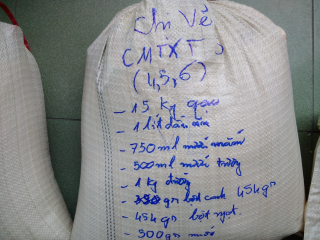 Chị Vẽ
CMTXT
(4,5,6)
- 15 Kg gạo
- 1 lít dầu ăn
- 750ml nước mắm
- 500ml nước tương
- 1 Kg đường
- gr bột canh 454gr
- 454 gr bột ngọt.
- 300gr muối